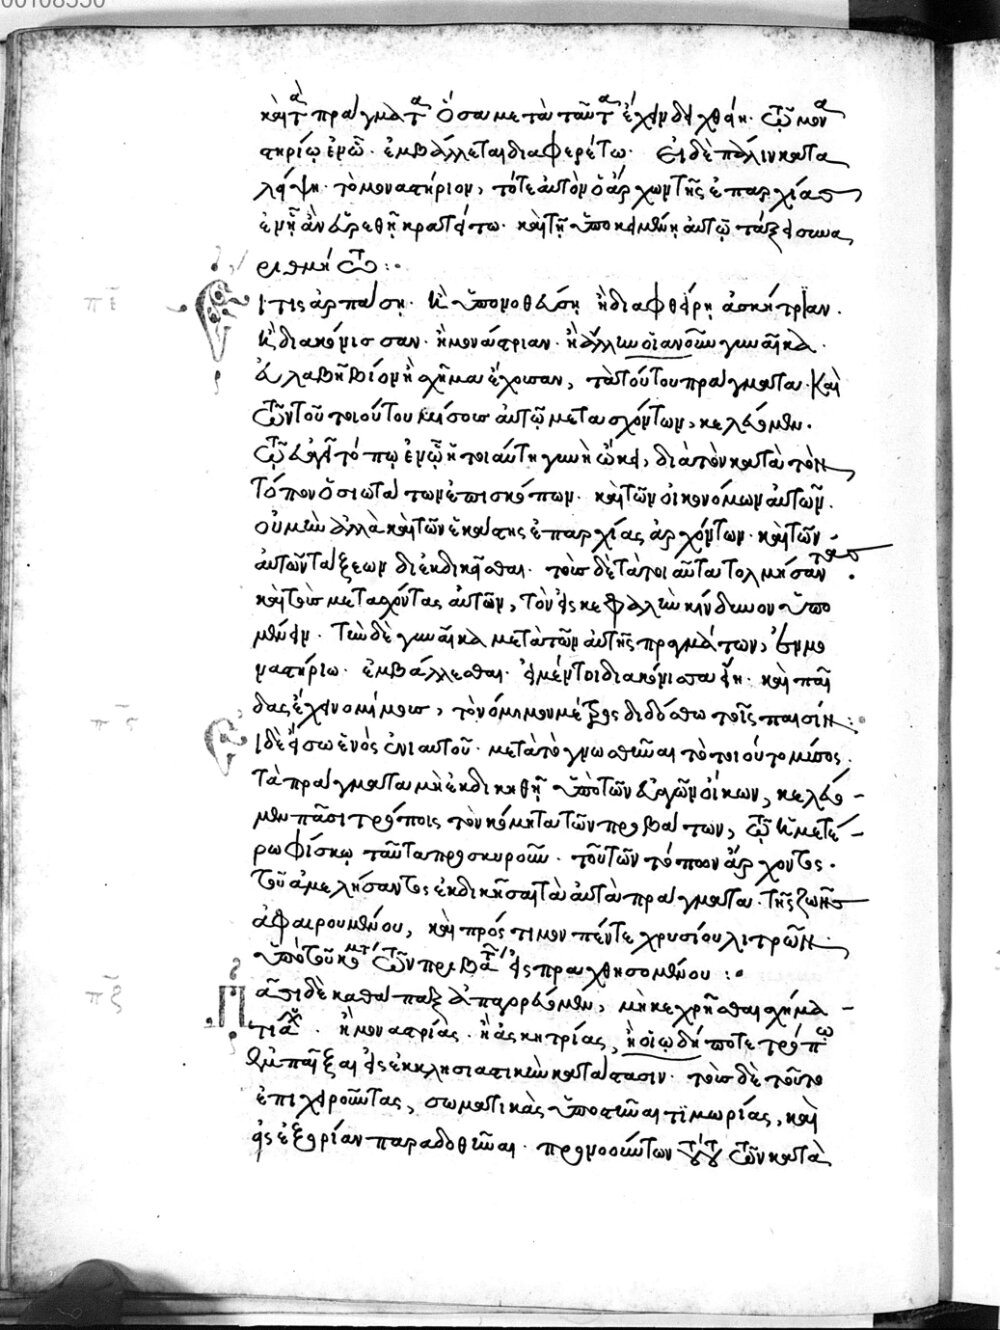 καὶ τὰ πράγματα ὅσα μετὰ ταῦτα ἔχειν δειχθείη· τῷ μονα
στηρίῳ ἐν ᾧ ἐμβάλλεται διαφερέτω· Εἰ δὲ πάλιν κατα
λείψῃ τὸ μοναστήριον, τότε αὐτὸν ὁ ἄρχων τῆς ἐπαρχίας
ἐν ᾗ ἂν εὑρεθῇ κρατείτω· καὶ τῇ ὑποκειμένῃ αὐτῷ τάξει συνα
ριθμείτω :·
πε Εἴ τις ἁρπάσῃ· ἢ ὑπονοθεύσῃ ἢ διαφθείρῃ ἀσκήτριαν·
ἢ διακόνισσαν· ἢ μονάστριαν· ἢ ἄλλην οἱανοῦν γυναῖκα·
εὐλαβῆ βίον ἢ σχῆμα ἔχουσαν, τὰ τούτου πράγματα· καὶ
τῶν τοῦ τοιούτου μύσους αὐτῷ μετασχόντων, κελεύομεν·
τῷ εὐαγεῖ τόπῳ ἐν ᾧ ἡ τοιαύτη γυνὴ ᾤκει, διὰ τῶν κατὰ τὸν
τόπον ὁσιωτάτων ἐπισκόπων· καὶ τῶν οἰκονόμων αὐτῶν·
οὐ μὴν ἀλλὰ καὶ τῶν ἑκάστης ἐπαρχίας ἀρχόντων· καὶ τῶν
αὐτῶν τάξεων διεκδικεῖσθαι· τοὺς δὲ τὰ τοιαῦτα τολμήσαντας·
καὶ τοὺς μετασχόντας αὐτῶν, τὸν εἰς κεφαλὴν κίνδυνον ὑπο
μένειν· Τὴν δὲ γυναῖκα μετὰ τῶν αὐτῆς πραγμάτων, ἐν μο
ναστηρίῳ· ἐμβάλλεσθαι· εἰ μέντοι διακόνισσα εἴη· καὶ παῖ
δας ἔχει νομίμους, τὸ νόμιμον μέρος διδόσθω τοῖς παισίν :·
πϛ Εἰ δὲ εἴσω ἑνὸς ἐνιαυτοῦ· μετὰ τὸ γνωσθῆναι τὸ τοιοῦτο μῦσος·
τὰ πράγματα μὴ ἐκδικηθῇ ὑπὸ τῶν εὐαγῶν οἴκων, κελεύο-
μεν πᾶσι τρόποις τὸν κόμητα τῶν πριβάτων, τῷ ἡμετέ-
ρῳ φίσκῳ ταῦτα προσκυροῦν· τοῦ τῶν τόπων ἄρχοντος·
τοῦ ἀμελήσαντος ἐκδικῆσαι τὰ αὐτὰ πράγματα· τῆς ζώνης
ἀφαιρουμένου, καὶ πρόστιμον πέντε χρυσίου λιτρῶν·
ὑπὸ τοῦ κόμητος τῶν πριβάτων εἰσπραχθησομένου :·
πζ Πᾶσι δὲ καθάπαξ ἀπαγορεύομεν, μὴ κεχρῆσθαι σχήμα-
τι μοναχοῦ· ἢ μοναστρίας· ἢ ἀσκητρίας, ἢ οἱῳδήποτε τρόπῳ
ἐμπαῖξαι εἰς ἐκκλησιαστικὴν κατάστασιν· τοὺς δὲ τοῦτο
ἐπιχειροῦντας, σωματικὰς ὑποστῆναι τιμωρίας, καὶ
εἰς ἐξορίαν παραδοθῆναι· προνοούντων τούτου τῶν κατὰ